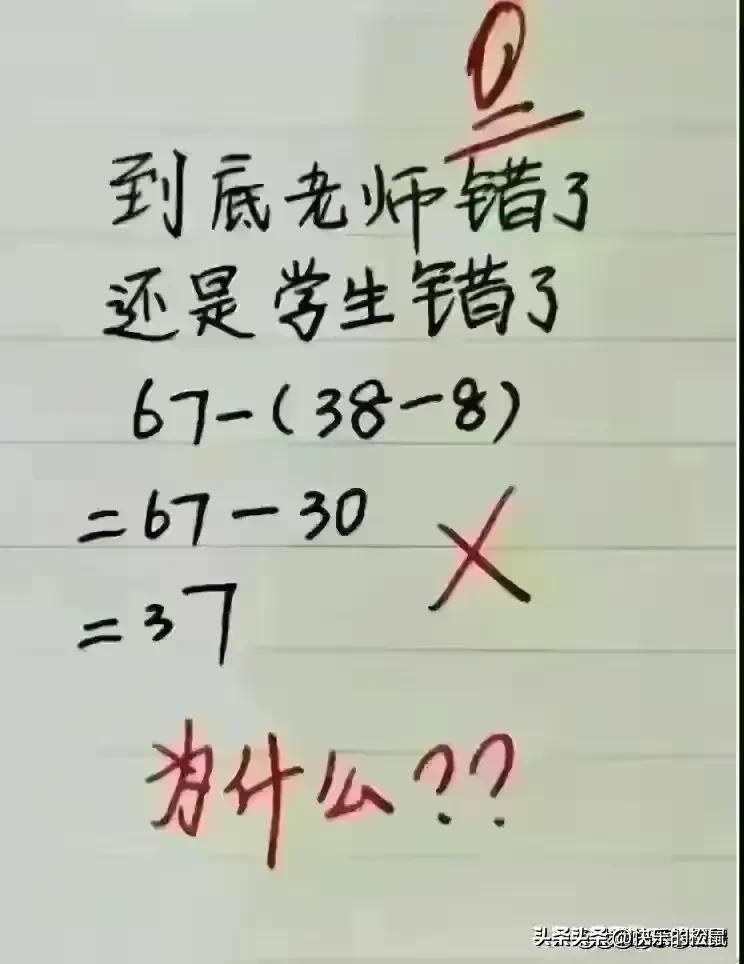 0
到底老师错了
还是学生错了
67-(38-8)
=67-30
=37
为什么??
头条 @快乐的松鼠